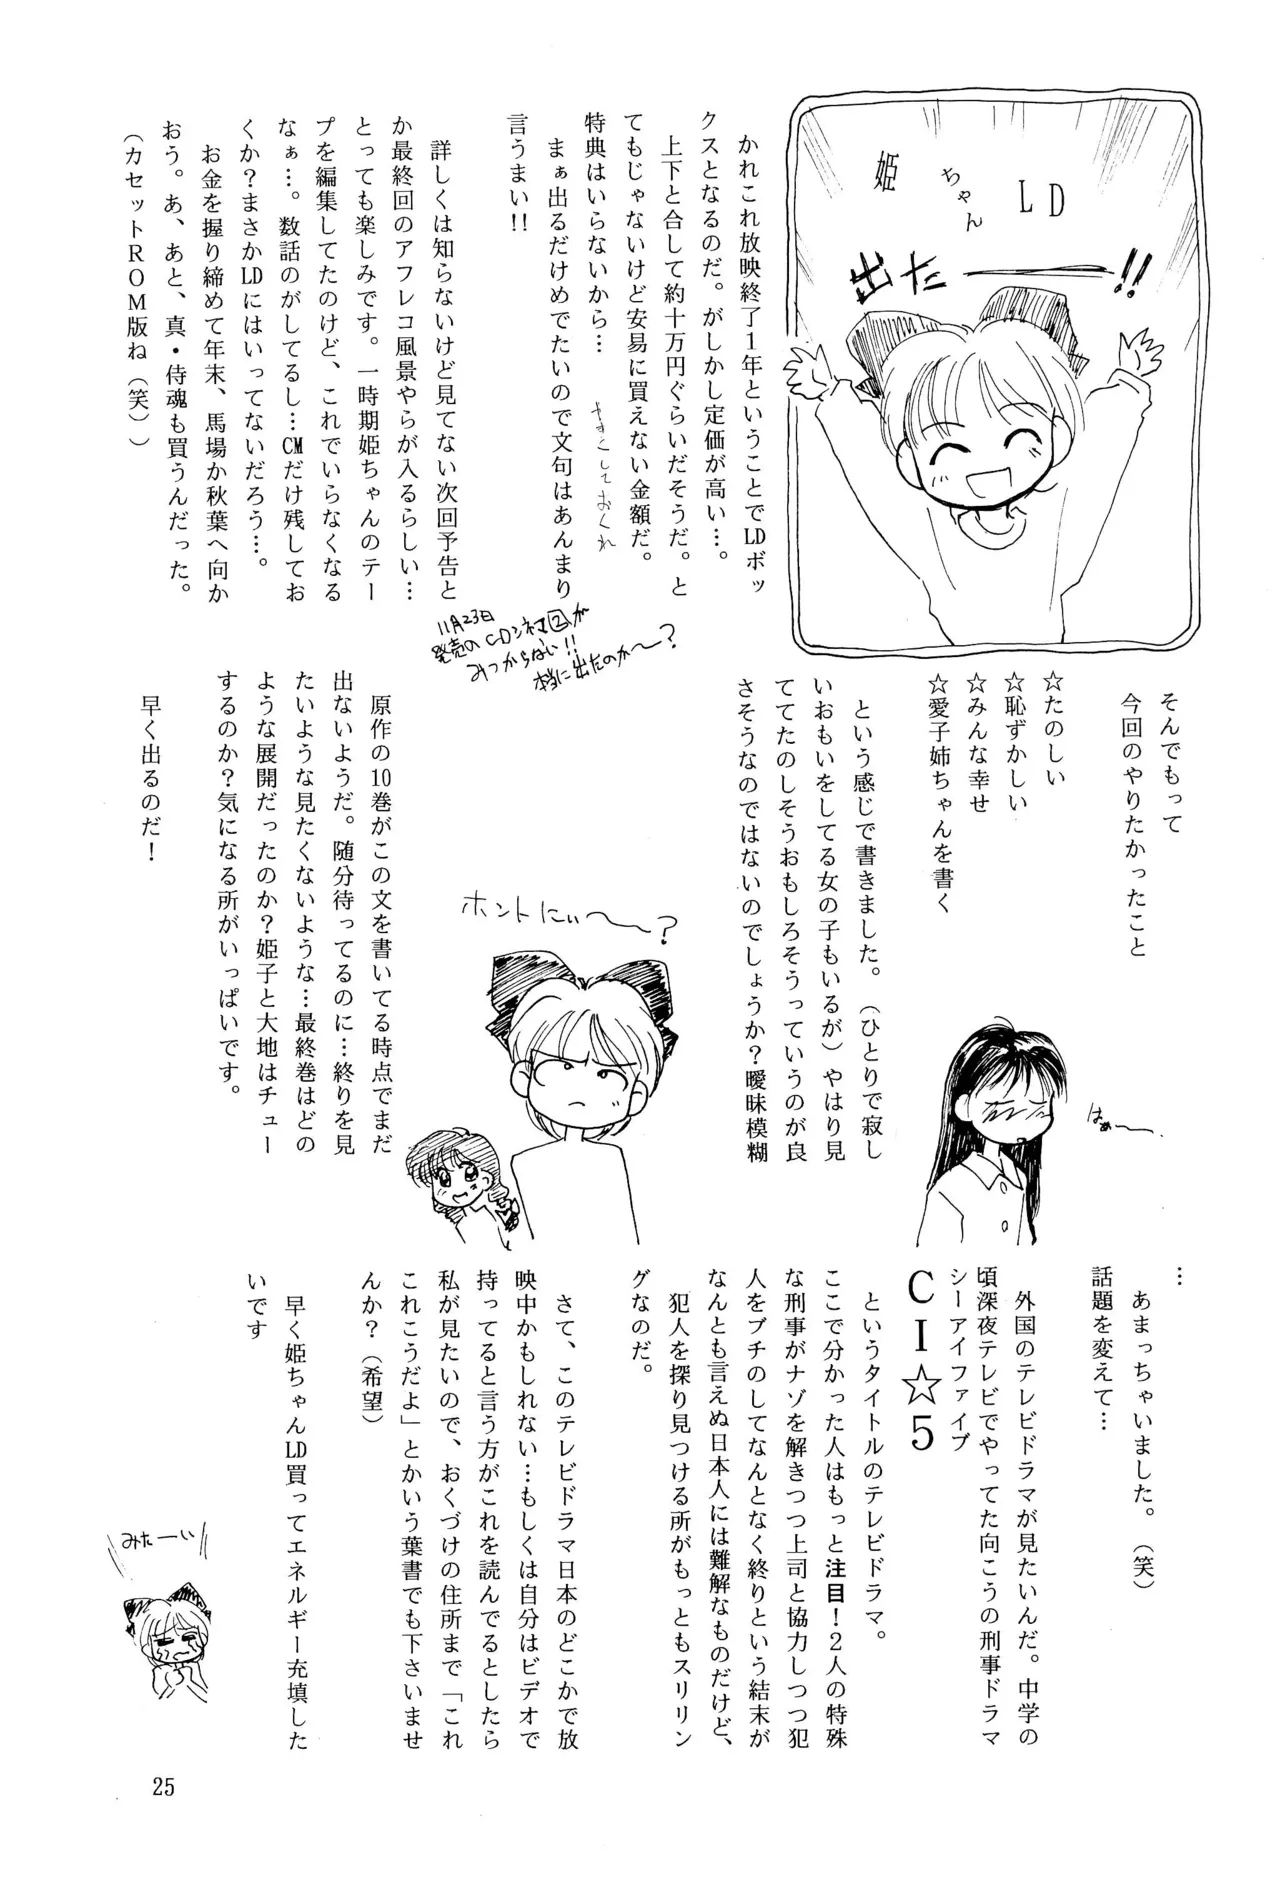 姫ちゃんLD
出たーーー!!
かれこれ放映終了1年ということでLDボッ
クスとなるのだ。がしかし定価が高い…。
上下と合して約十万円ぐらいだそうだ。と
てもじゃないけど安易に買えない金額だ。
特典はいらないから…
やすくしておくれ
まぁ出るだけめでたいので文句はあんまり
言うまい!!
詳しくは知らないけど見てない次回予告と
か最終回のアフレコ風景やらが入るらしい…
とっても楽しみです。一時期姫ちゃんのテー
プを編集してたのけど、これでいらなくなる
なぁ…。数話のがしてるし…CMだけ残してお
くか？まさかLDにはいってないだろう…。
お金を握り締めて年末、馬場か秋葉へ向か
おう。あ、あと、真・侍魂も買うんだった。
（カセットROM版ね（笑））
11月23日
発売のCDシネマ2が
みつからない!!
本当に出たのか〜？
そんでもって
今回のやりたかったこと
☆たのしい
☆恥ずかしい
☆みんな幸せ
☆愛子姉ちゃんを書く
という感じで書きました。（ひとりで寂し
いおもいをしてる女の子もいるが）やはり見
ててたのしそうおもしろそうっていうのが良
さそうなのではないのでしょうか？曖昧模糊
はぁ〜
ホントにぃ〜？
原作の10巻がこの文を書いてる時点でまだ
出ないようだ。随分待ってるのに…終りを見
たいような見たくないような…最終巻はどの
ような展開だったのか？姫子と大地はチュー
するのか？気になる所がいっぱいです。
早く出るのだ！
…
あまっちゃいました。（笑）
話題を変えて…
外国のテレビドラマが見たいんだ。中学の
頃深夜テレビでやってた向こうの刑事ドラマ
シーアイファイブ
CI☆5
というタイトルのテレビドラマ。
ここで分かった人はもっと注目！2人の特殊
な刑事がナゾを解きつつ上司と協力しつつ犯
人をブチのしてなんとなく終りという結末が
なんとも言えぬ日本人には難解なものだけど、
犯人を探り見つける所がもっともスリリン
グなのだ。
さて、このテレビドラマ日本のどこかで放
映中かもしれない…もしくは自分はビデオで
持ってると言う方がこれを読んでるとしたら
私が見たいので、おくづけの住所まで「これ
これこうだよ」とかいう葉書でも下さいませ
んか？（希望）
早く姫ちゃんLD買ってエネルギー充填した
いです
みたーい
25